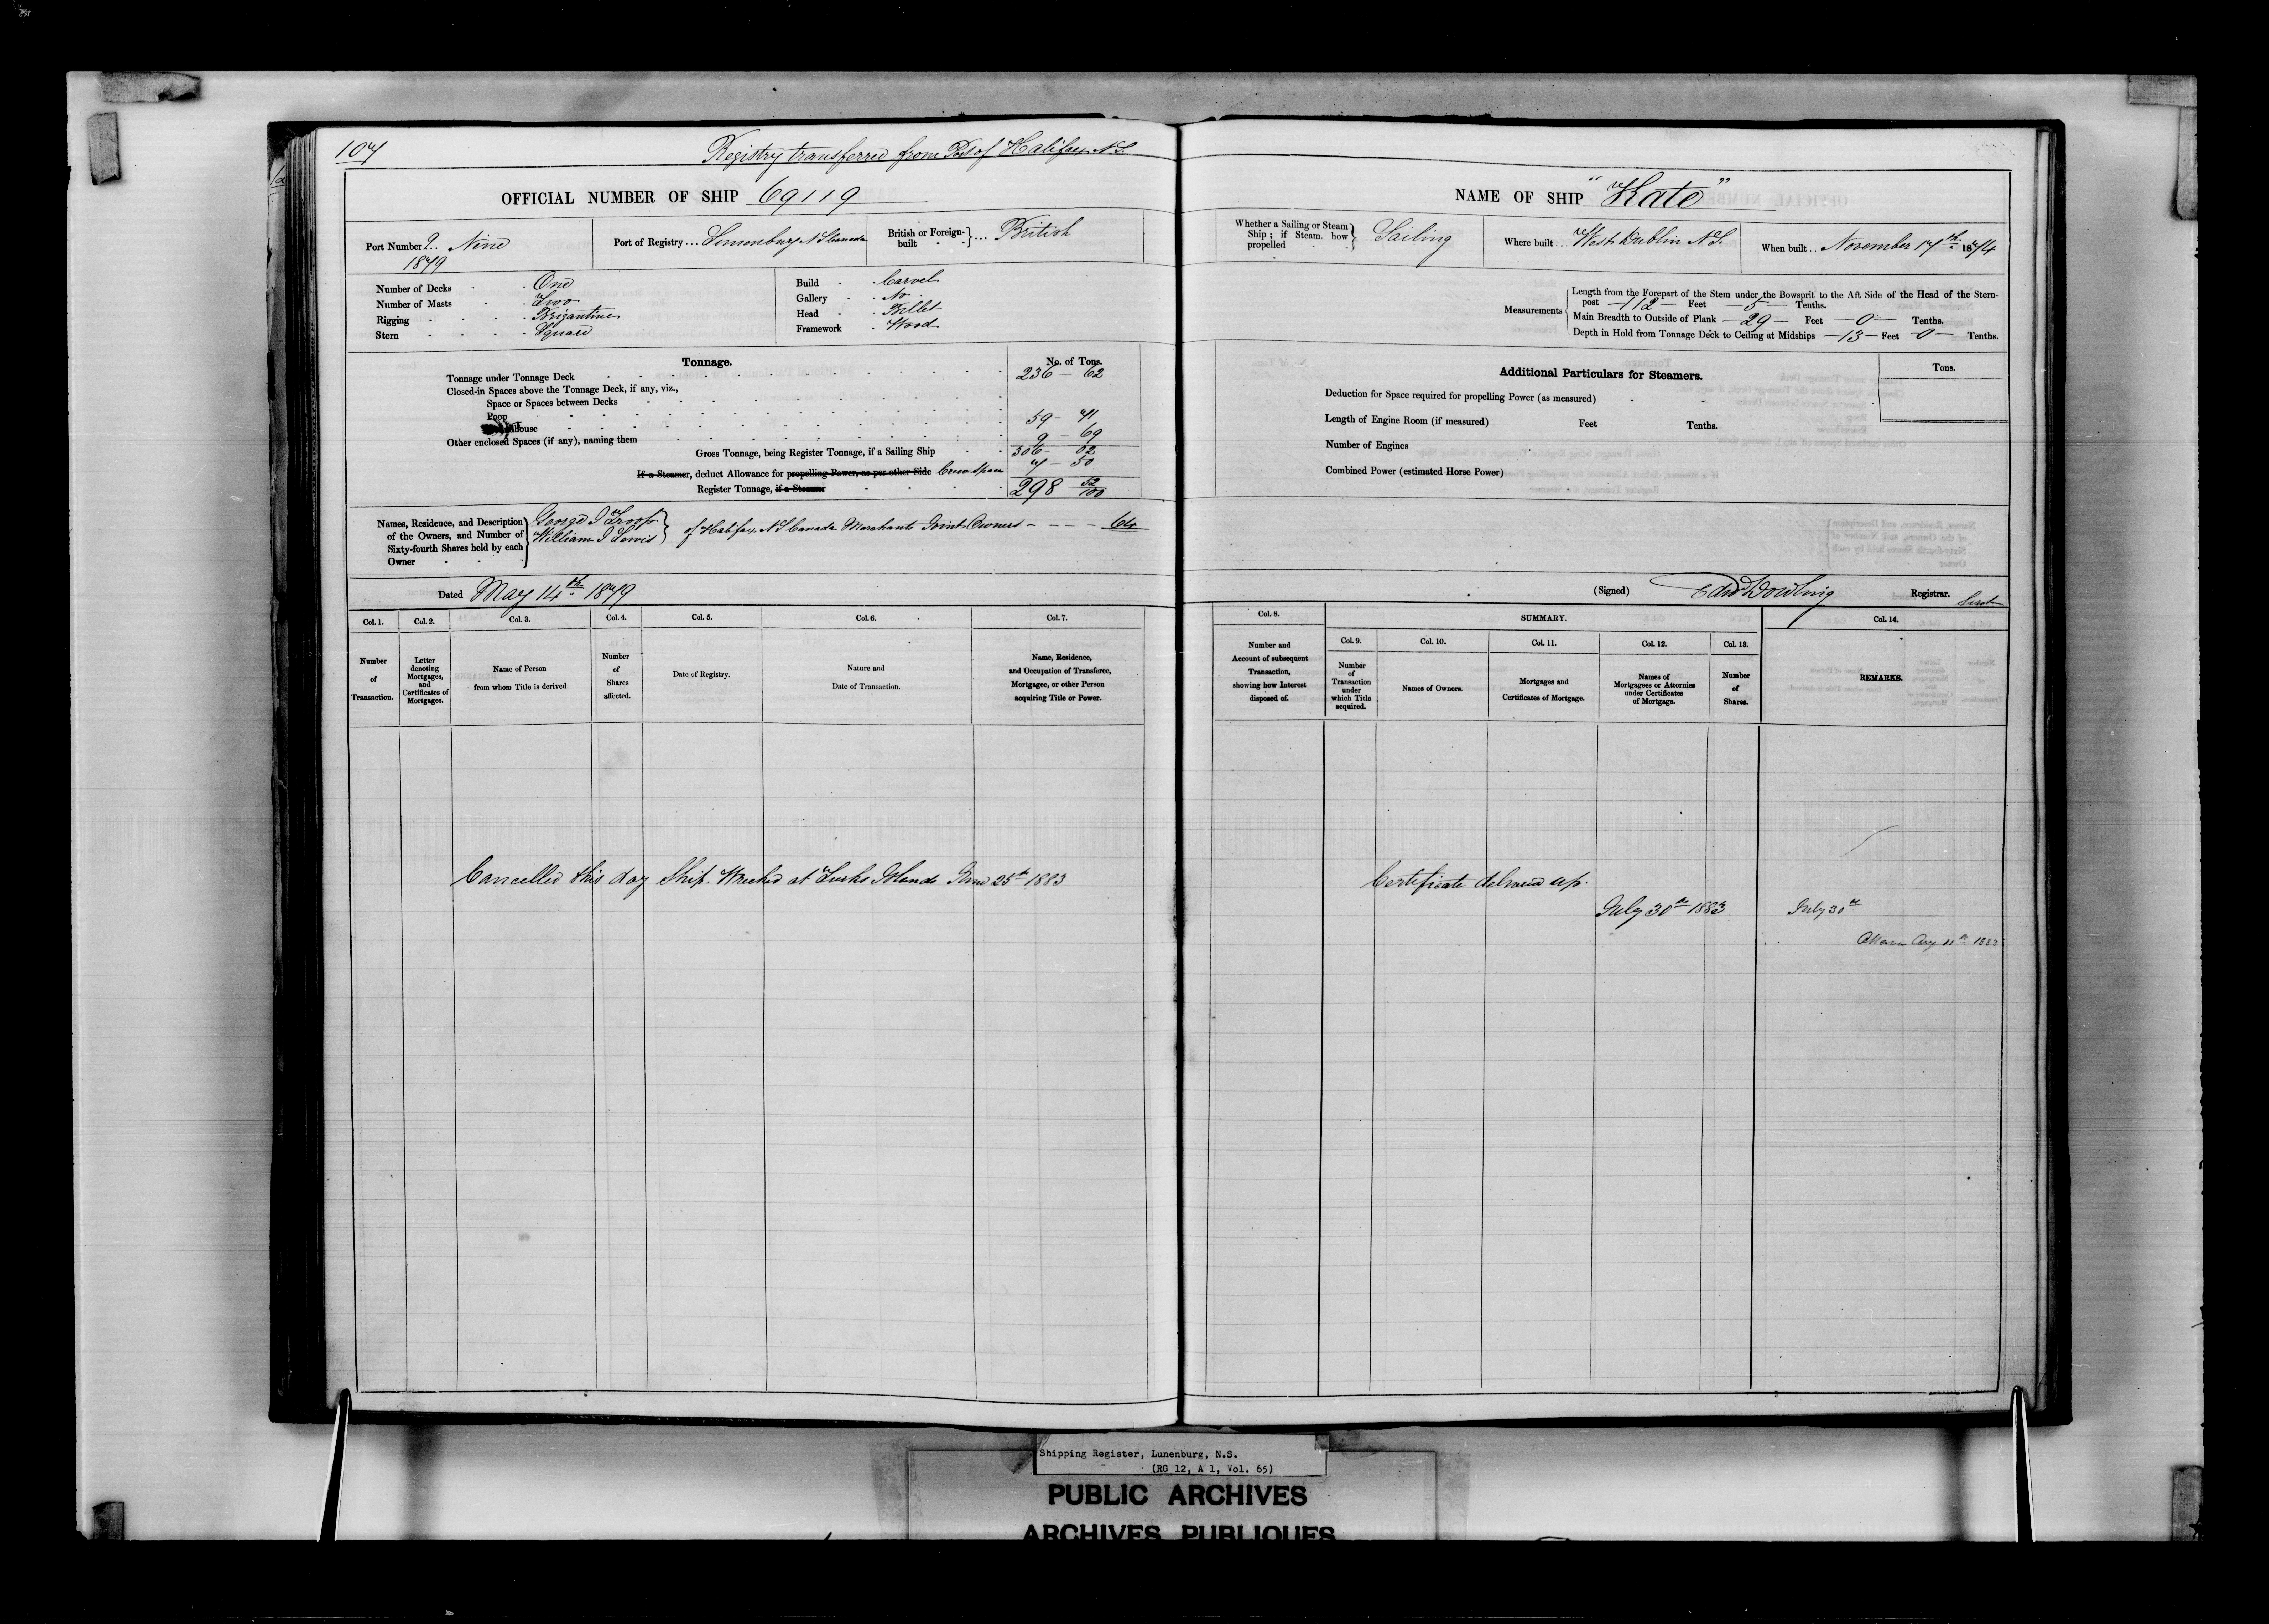 107
Registry transferred from Port of Halifax N.S.
OFFICIAL NUMBER OF SHIP 69119
Port Number 9.. Nine
1879
Port of Registry... Lunenburg N S Canada
British or Foreign-built }... British
Number of Decks One
Number of Masts Two
Rigging Brigantine
Stern Square
Build Carvel
Gallery No
Head Billet
Framework Wood
Tonnage.
No. of Tons.
Tonnage under Tonnage Deck 236 - 62
Closed-in Spaces above the Tonnage Deck, if any, viz.,
Space or Spaces between Decks
Poop 59 - 71
house 9 - 69
Other enclosed Spaces (if any), naming them
Gross Tonnage, being Register Tonnage, if a Sailing Ship 306 - 02
If a Steamer, deduct Allowance for propelling Power, as per other Side Crew Space 7 - 50
Register Tonnage, if a Steamer 298 52/100
Names, Residence, and Description of the Owners, and Number of Sixty-fourth Shares held by each Owner
George J Troop
William J Lewis } of Halifax N S Canada Merchants Joint Owners - - - - 64
Dated May 14th 1879
Col. 1. Col. 2. Col. 3. Col. 4. Col. 5. Col. 6. Col. 7.
Number of Transaction.
Letter denoting Mortgages, and Certificates of Mortgages.
Name of Person from whom Title is derived
Number of Shares affected.
Date of Registry.
Nature and Date of Transaction.
Name, Residence, and Occupation of Transferee, Mortgagee, or other Person acquiring Title or Power.
Cancelled this day Ship Wrecked at Turks Islands June 25th 1883
NAME OF SHIP "Kate"
Whether a Sailing or Steam Ship; if Steam, how propelled } Sailing
Where built... West Dublin N.S.
When built.. November 17th 1874
Measurements
Length from the Forepart of the Stem under the Bowsprit to the Aft Side of the Head of the Stern-
post - 112 - Feet - 5 - Tenths.
Main Breadth to Outside of Plank - 29 - Feet - 0 - Tenths.
Depth in Hold from Tonnage Deck to Ceiling at Midships - 13 - Feet 0 - Tenths.
Additional Particulars for Steamers.
Tons.
Deduction for Space required for propelling Power (as measured)
Length of Engine Room (if measured) Feet Tenths.
Number of Engines
Combined Power (estimated Horse Power)
(Signed) Edw Dowling Registrar.
Col. 8.
SUMMARY.
Col. 14.
Col. 9. Col. 10. Col. 11. Col. 12. Col. 13.
Number and Account of subsequent Transaction, showing how Interest disposed of.
Number of Transaction under which Title acquired.
Names of Owners.
Mortgages and Certificates of Mortgage.
Names of Mortgagees or Attornies under Certificates of Mortgage.
Number of Shares.
REMARKS.
Certificate delivered up.
July 30th 1883
July 30th
Ottawa Aug 11th 1883
Shipping Register, Lunenburg, N.S.
(RG 12, A 1, Vol. 65)
PUBLIC ARCHIVES
ARCHIVES PUBLIQUES